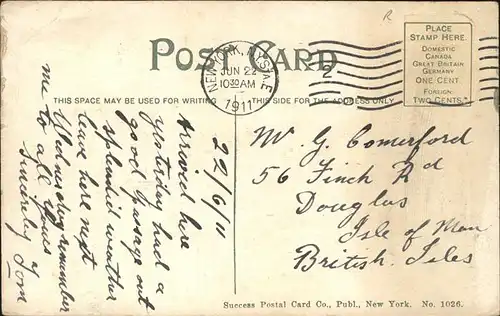 POST CARD
NEW YORK, N.Y. STA. E
JUN 22
10 30 AM
1911
2
PLACE
STAMP HERE.
DOMESTIC
CANADA
GREAT BRITAIN
GERMANY
ONE CENT.
FOREIGN
TWO CENTS.
THIS SPACE MAY BE USED FOR WRITING
THIS SIDE FOR THE ADDRESS ONLY.
22/6/11
Arrived here
ysterday had a
good passage out
splendid weather
leave here next
Wednesday remember
me to all yours
Sincerely Tom
W. G. Comerford
56 Finch Rd
Douglas
Isle of Man
British Isles
Success Postal Card Co., Publ., New York. No. 1026.